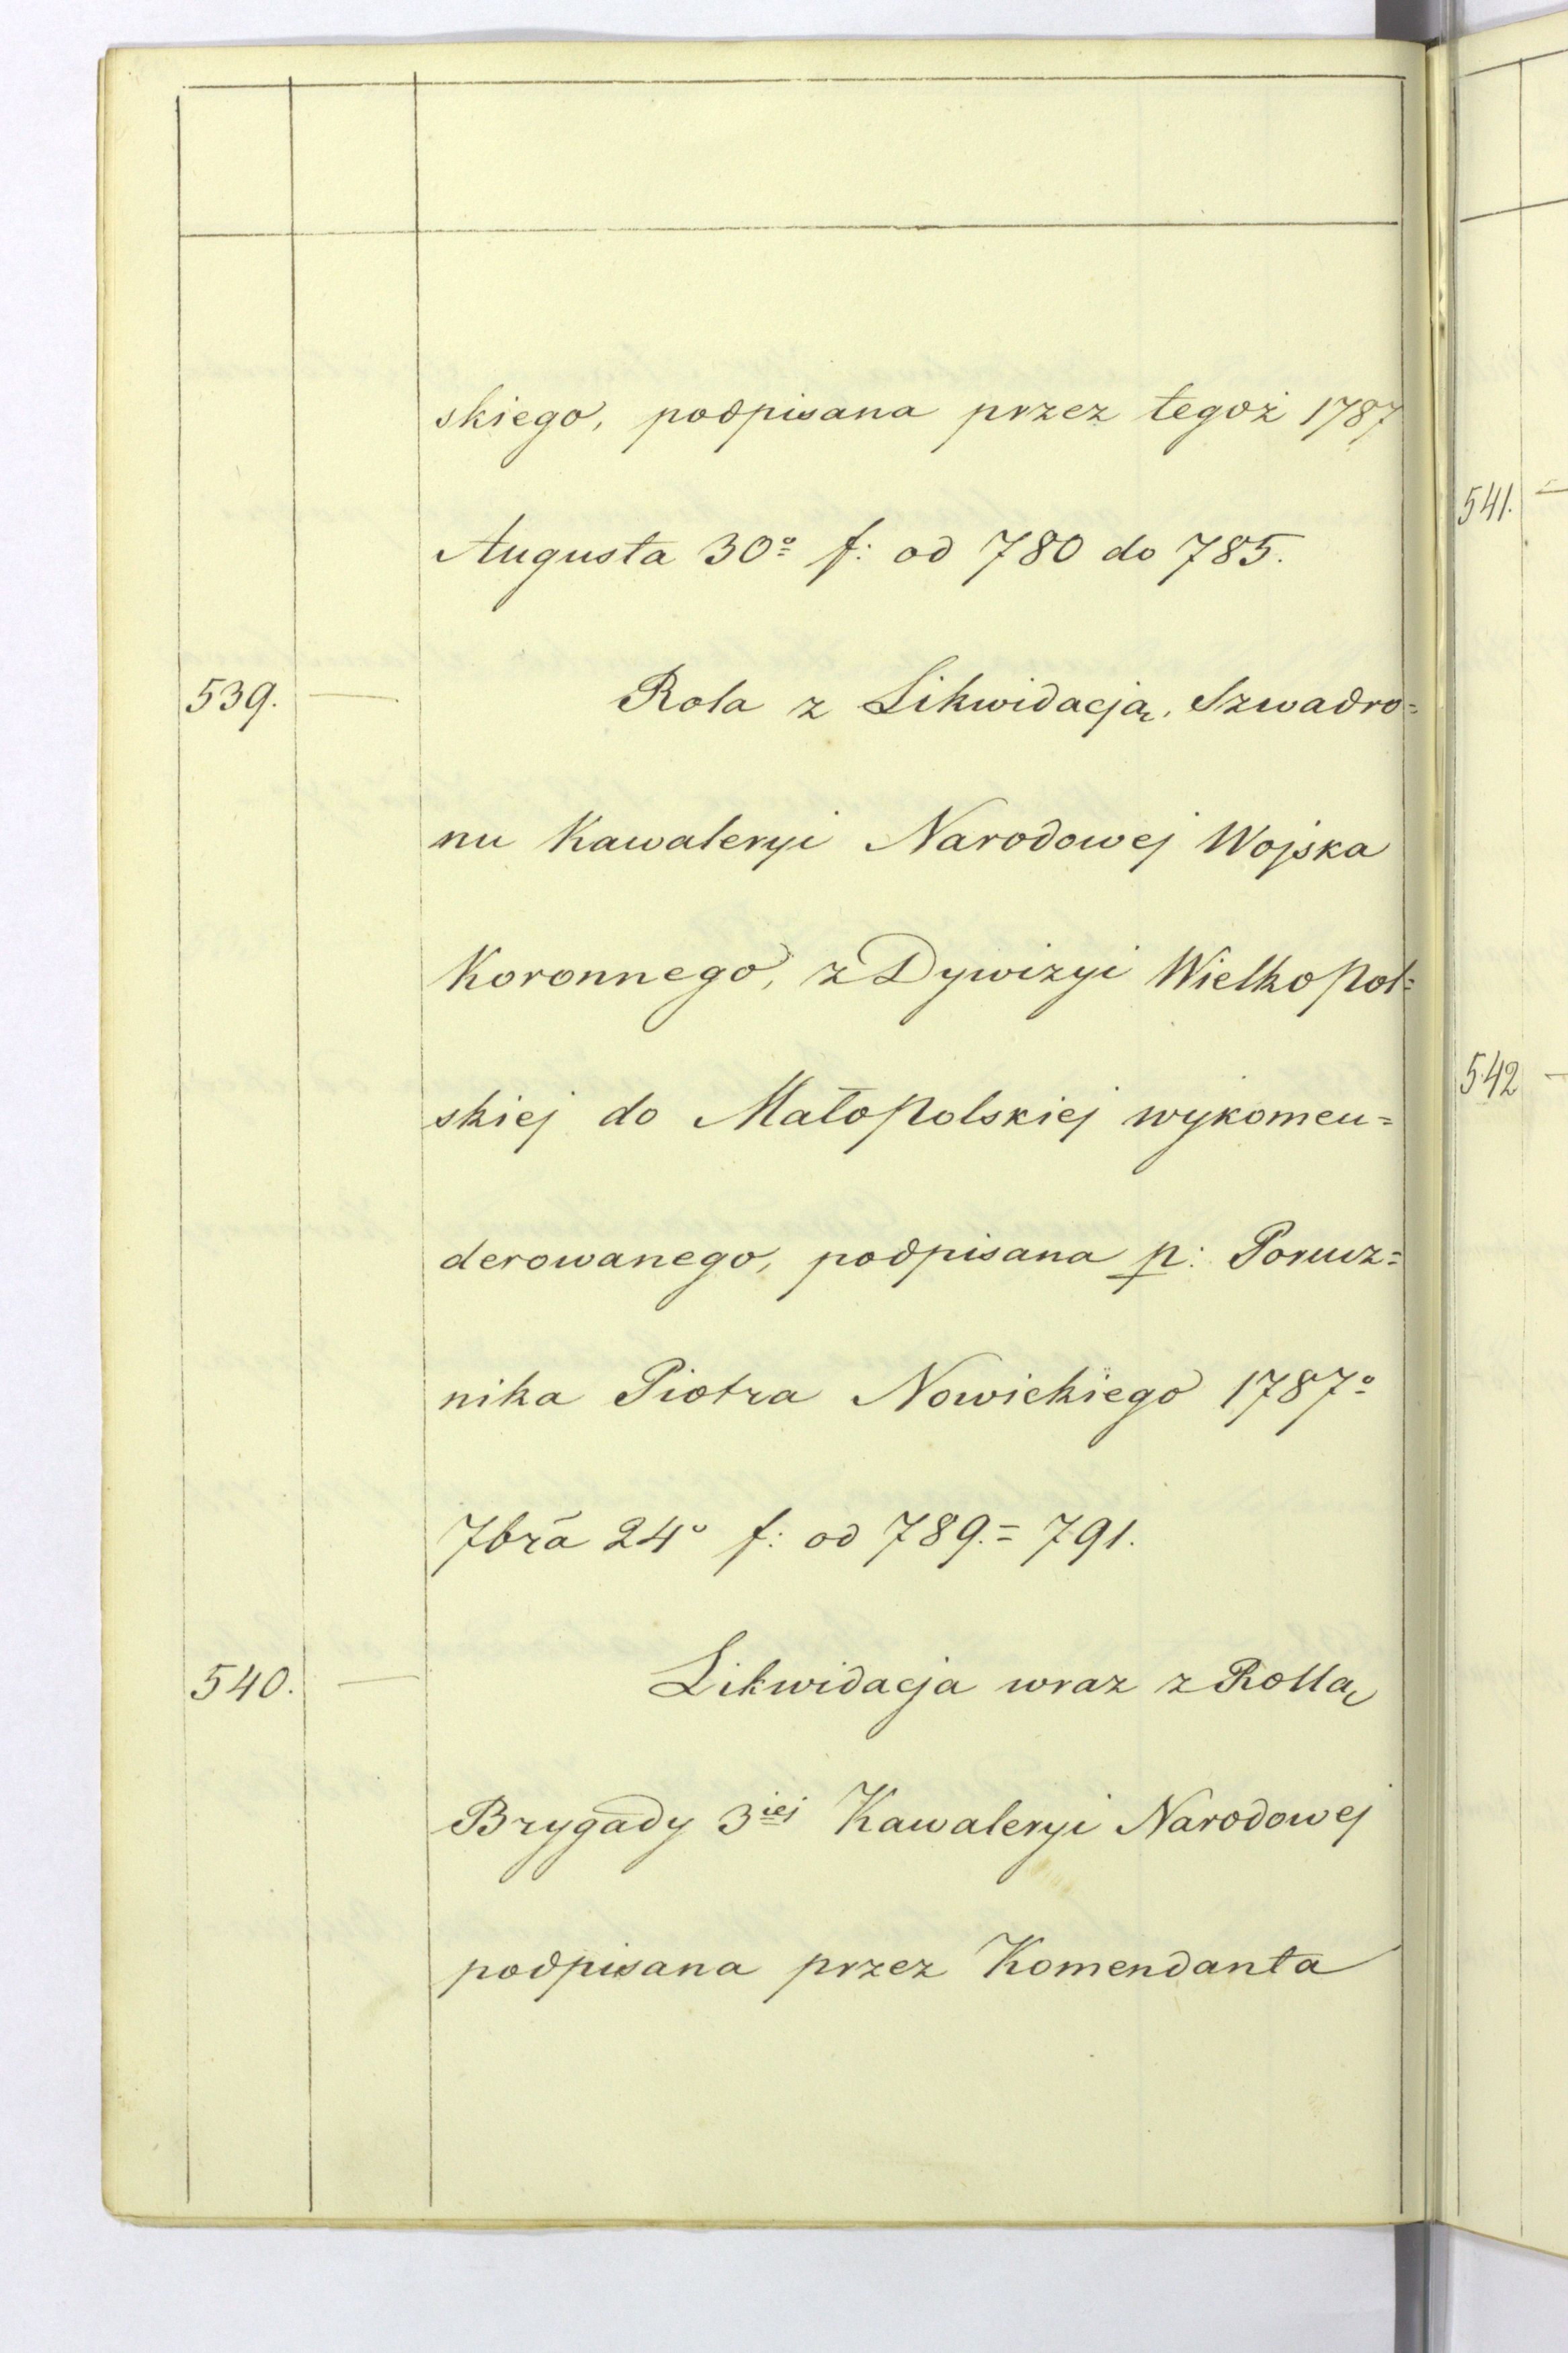 skiego, podpisana przez tegoż 1787
Augusta 30º f: od 780 do 785.
539. — Rola z Likwidacją, Szwadro=
nu Kawaleryi Narodowej Wojska
Koronnego, z Dywizyi Wielkopol=
skiej do Małopolskiej wykomen=
derowanego, podpisana p: Porucz=
nika Piotra Nowickiego 1787º
7bra 24º f: od 789.= 791.
540. — Likwidacja wraz z Rollą
Brygady 3iej Kawaleryi Narodowej
podpisana przez Komendanta
541. —
542 —